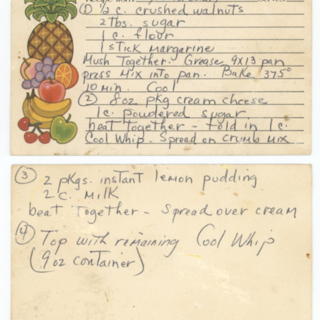 ① ½ c. crushed walnuts
2 tbs. sugar
1 c. floor
1 stick margerine
Mush Together. Grease 9x13 pan
press Mix into pan. Bake 375°
10 min. Cool
② 8oz pkg cream cheese
1 c. powdered sugar
beat together - fold in 1 c.
Cool Whip. Spread on crumb mix
③ 2 pkgs. instant lemon pudding
2 c. Milk
beat Together - Spread over cream
④ Top with remaining Cool Whip
(9 oz container)